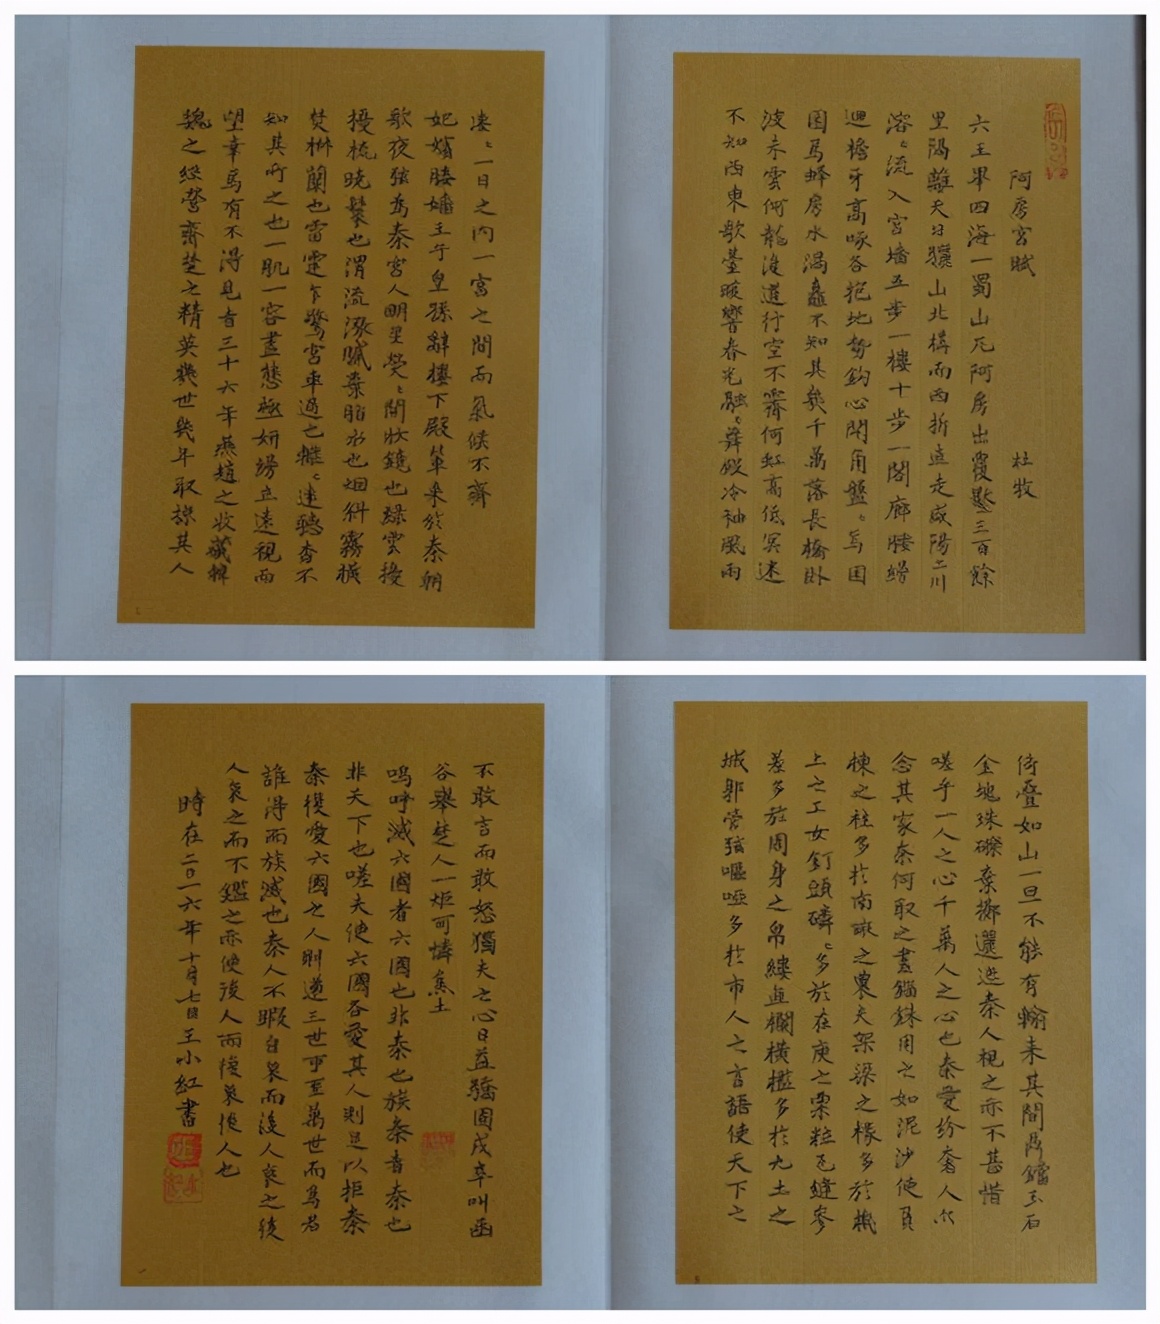 阿房宮賦 杜牧
六王畢四海一蜀山兀阿房出覆壓三百餘
里隔離天日驪山北構而西折直走咸陽二川
溶〻流入宮墻五步一樓十步一閣廊腰縵
迴檐牙高啄各抱地勢鈎心鬥角盤〻焉囷
囷焉蜂房水渦矗不知其幾千萬落長橋臥
波未雲何龍復道行空不霽何虹高低冥迷
不知西東歌臺暖響春光融〻舞殿冷袖風雨
凄〻一日之內一宮之間而氣候不齊
妃嬪媵嬙王子皇孫辭樓下殿輦來於秦朝
歌夜弦為秦宮人明星熒〻開妝鏡也綠雲擾
擾梳曉鬟也渭流漲膩棄脂水也烟斜霧橫
焚椒蘭也雷霆乍驚宮車過也轆〻遠聽杳不
知其所之也一肌一容盡態極妍縵立遠視而
望幸焉有不得見者三十六年燕趙之收藏韓
魏之經營齊楚之精英幾世幾年取掠其人
倚叠如山一旦不能有輸来其間鼎鐺玉石
金塊珠礫棄擲邐迤秦人視之亦不甚惜
嗟乎一人之心千萬人之心也秦愛紛奢人亦
念其家奈何取之盡錙銖用之如泥沙使負
棟之柱多於南畝之農夫架梁之椽多於機
上之工女釘頭磷〻多於在庾之粟粒瓦縫參
差多於周身之帛縷直欄橫檻多於九土之
城郭管弦嘔啞多於市人之言語使天下之
不敢言而敢怒獨夫之心日益驕固戍卒叫函
谷舉楚人一炬可憐焦土
嗚呼滅六國者六國也非秦也族秦者秦也
非天下也嗟夫使六國各愛其人則足以拒秦
秦復愛六國之人則遞三世可至萬世而為君
誰得而族滅也秦人不暇自哀而後人哀之後
人哀之而不鑑之亦使後人而復哀後人也
時在二〇一六年十月七日王小紅書